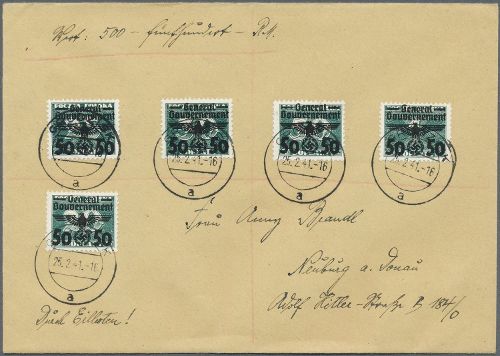 Wert: 500 - fünfhundert - RM.
General
Gouvernement
50 50
General
Gouvernement
50 50
General
Gouvernement
50 50
General
Gouvernement
50 50
26.2.41.-16
a
26.2.41.-16
a
26.2.41.-16
a
a
General
Gouvernement
50 50
26.2.41.-16
a
Frau Anny Brandl
Neuburg a. Donau
Adolf Hitler-Straße B 184/0
Durch Eilboten!